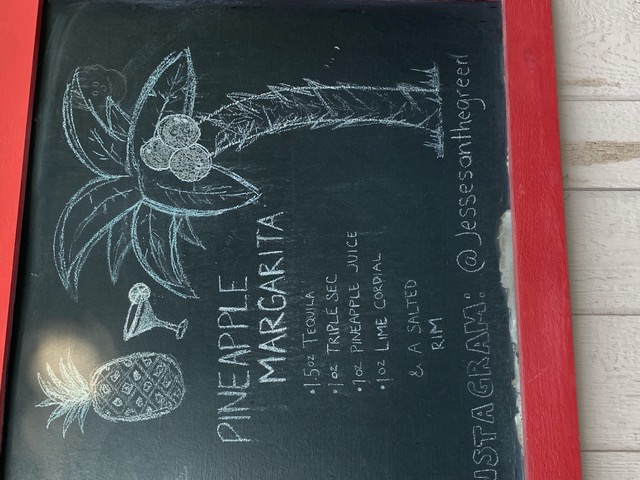 PINEAPPLE
MARGARITA
• 1.5oz TEQUILA
• 1oz TRIPLE SEC
• 1oz PINEAPPLE JUICE
• 1oz LIME CORDIAL
& A SALTED
RIM
NSTAGRAM: @Jessesonthegreen